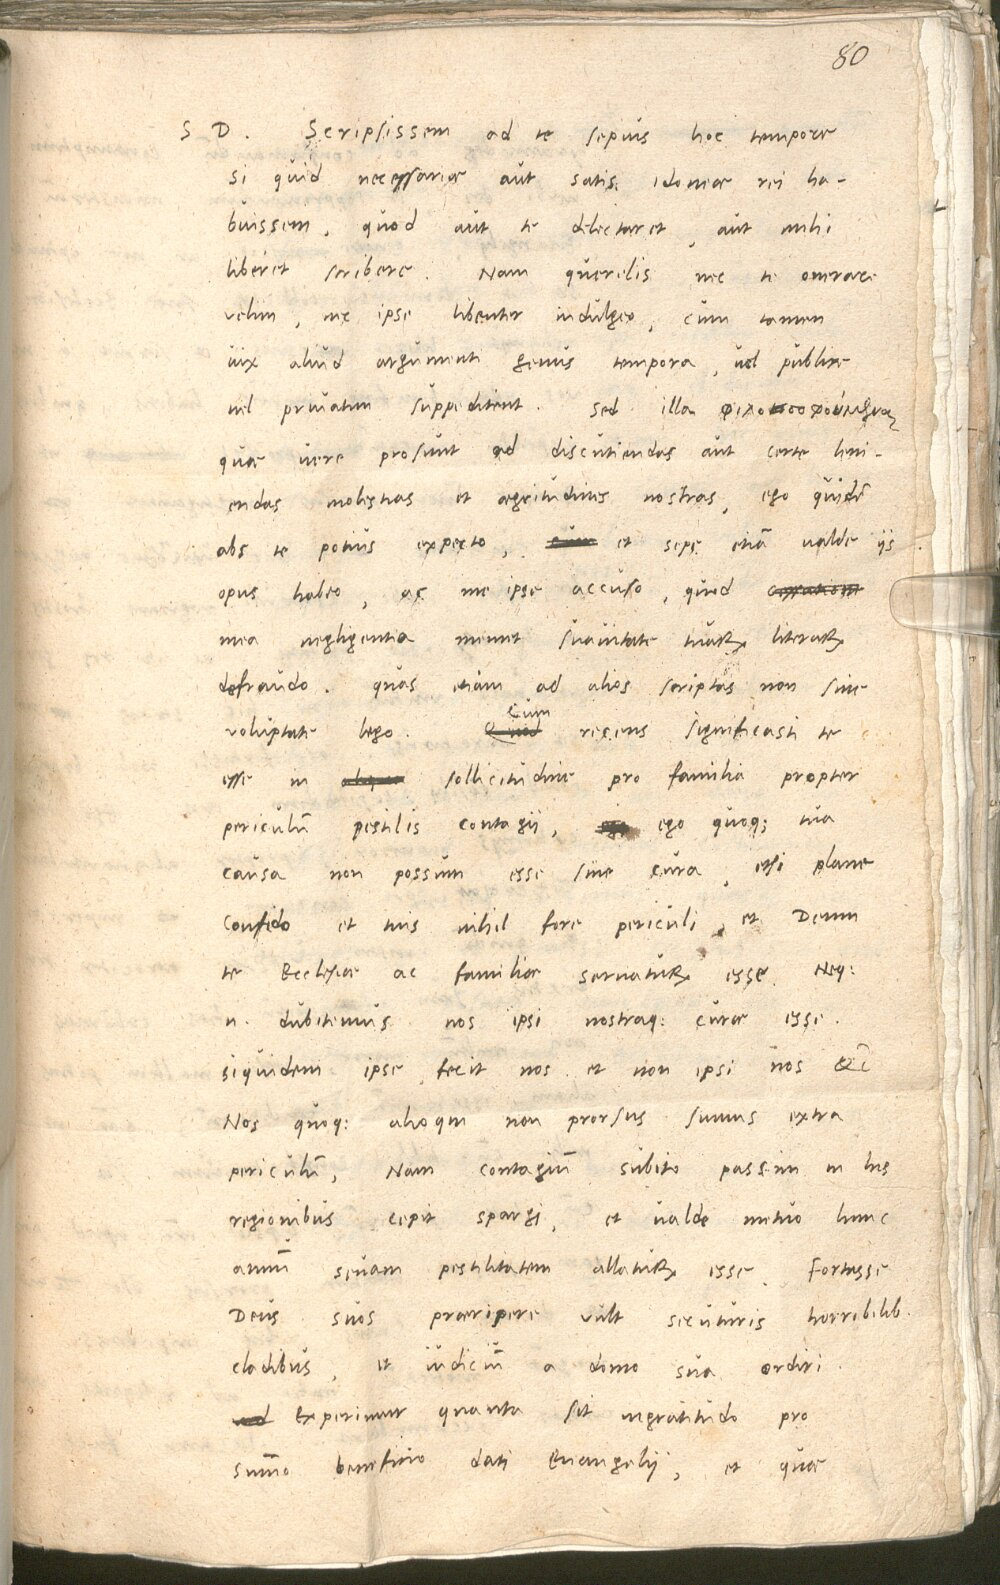 80
S D. Scripsissem ad te sepius hoc tempore
si quid necessariæ aut satis idoneæ rei ha-
buissem, quod aut te delectaret, aut mihi
liberet scribere. Nam querelis nec te onerare
velim, nec ipse libenter indulgeo, cum tamen
uix aliud argumenti genus tempora, uel publice
uel priuatim suppeditent. Sed illa
quæ uere prosunt ad discutiendas aut certe leni-
endas molestias et ægritudines nostras, ego quidē
abs te potius expecto, et sepe etiā ualde iis
opus habeo, ac me ipse accuso, quod
mea negligentia memet suauitate tuaꝝ literaꝝ
defraudo. quas etiam ad alios scriptas non sine
voluptate lego. Cum recens significasti te
esse in sollicitudine pro familia propter
periculū pestilis contagij, ego quoq; tua
causa non possum esse sine cura, etsi plane
confido et tuis nihil fore periculi, et Deum
te Ecclesiæ ac familiæ seruatuꝝ esse. Neq:
n. dubitemus nos ipsi nostraq: curæ esse.
siquidem ipse fecit nos et non ipsi nos &c̄
Nos quoq: alioqui non prorsus sumus extra
periculū, Nam contagiū subito passim in his
regionibus cepit spargi, et ualde metuo hunc
annū seuam pestilitatem allatuꝝ esse. Fortasse
Deus suos præripere vult secuturis horribilib.
cladibus, et iudiciū a domo sua ordiri.
Experimur quanta sit ingratitudo pro
sum̄o beneficio dati Euangelij, et quæ